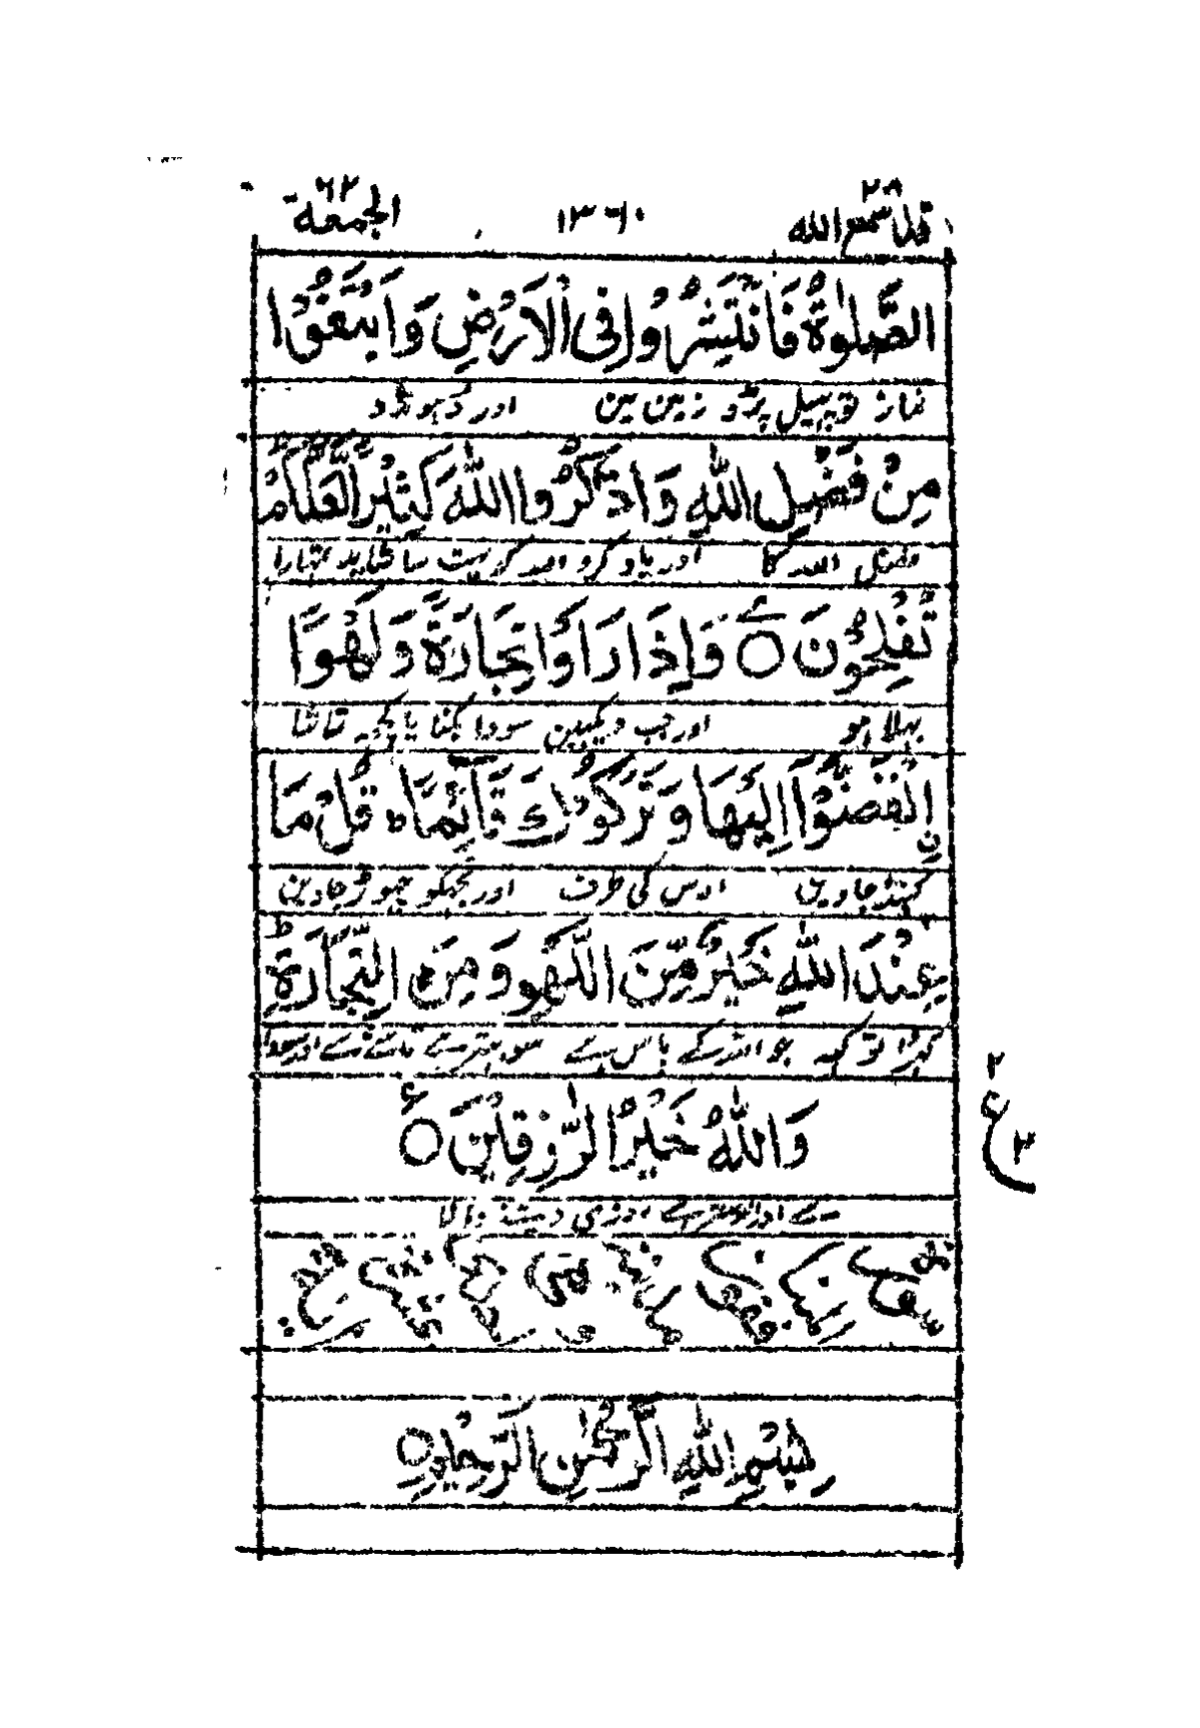 قد سمع الله ٢٨ ١٣٦٠ الجمعة ٦٢
الصَّلٰوةُ فَانْتَشِرُوْا فِى الْاَرْضِ وَابْتَغُوْا
نماز تو پہیل پڑو زمین مین اور ڈہونڈو
مِنْ فَضْلِ اللّٰهِ وَاذْكُرُوا اللّٰهَ كَثِيْرًا لَّعَلَّكُمْ
فضل اللہ کا اور یاد کرو اللہ کو بہت سا شاید تمہارا
تُفْلِحُوْنَ ○ وَاِذَا رَاَوْا تِجَارَةً وَلَهْوَا
بہلا ہو اور جب دیکہین سودا بکتا یا کچہ تماشا
نِ انْفَضُّوْۤا اِلَيْهَا وَتَرَكُوْكَ قَآئِمًا ؕ قُلْ مَا
کہنڈ جاوین اوس کی طرف اور تجہکو چہوڑ جاوین
عِنْدَ اللّٰهِ خَيْرٌ مِّنَ اللَّهْوِ وَمِنَ التِّجَارَةِ ؕ
کہڑا تو کہہ جو اللہ کے پاس ہے سو بہتر ہے تماشے سے اور سودا
وَاللّٰهُ خَيْرُ الرّٰزِقِيْنَ ○
٢ ع ٢
سے اور اللہ بہتر ہے روزی دینے والا
بِسْمِ اللّٰهِ الرَّحْمٰنِ الرَّحِيْمِ ○